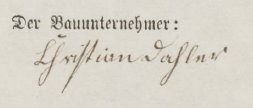 Der Bauunternehmer:
Christian Dahler